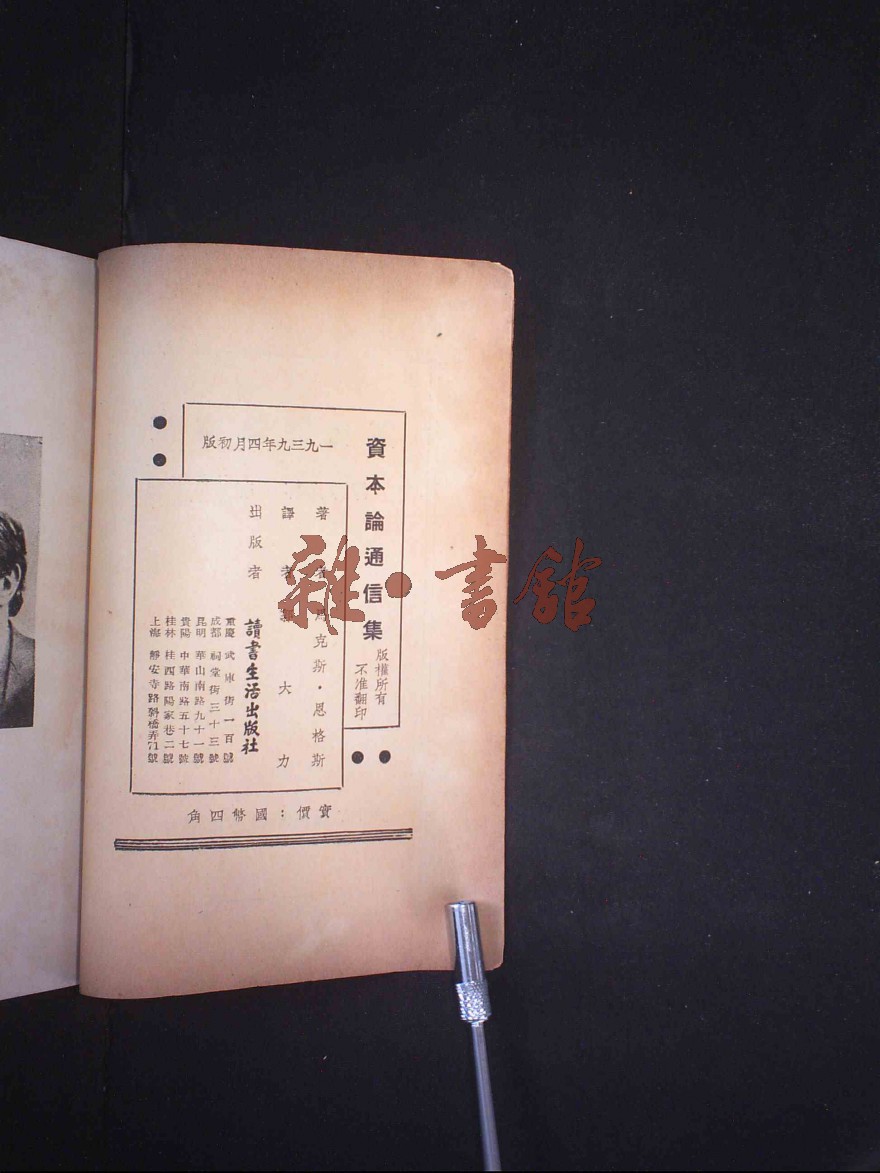 資本論通信集
版權所有
不准翻印
一九三九年四月初版
著者 馬克斯・恩格斯
譯者 大力
出版者 讀書生活出版社
重慶 武庫街一百號
成都 祠堂街三十三號
昆明 華山南路九十一號
貴陽 中華南路五十七號
桂林 桂西路陽家巷二號
上海 靜安寺路斜橋弄71號
實價：國幣四角
雜・書館